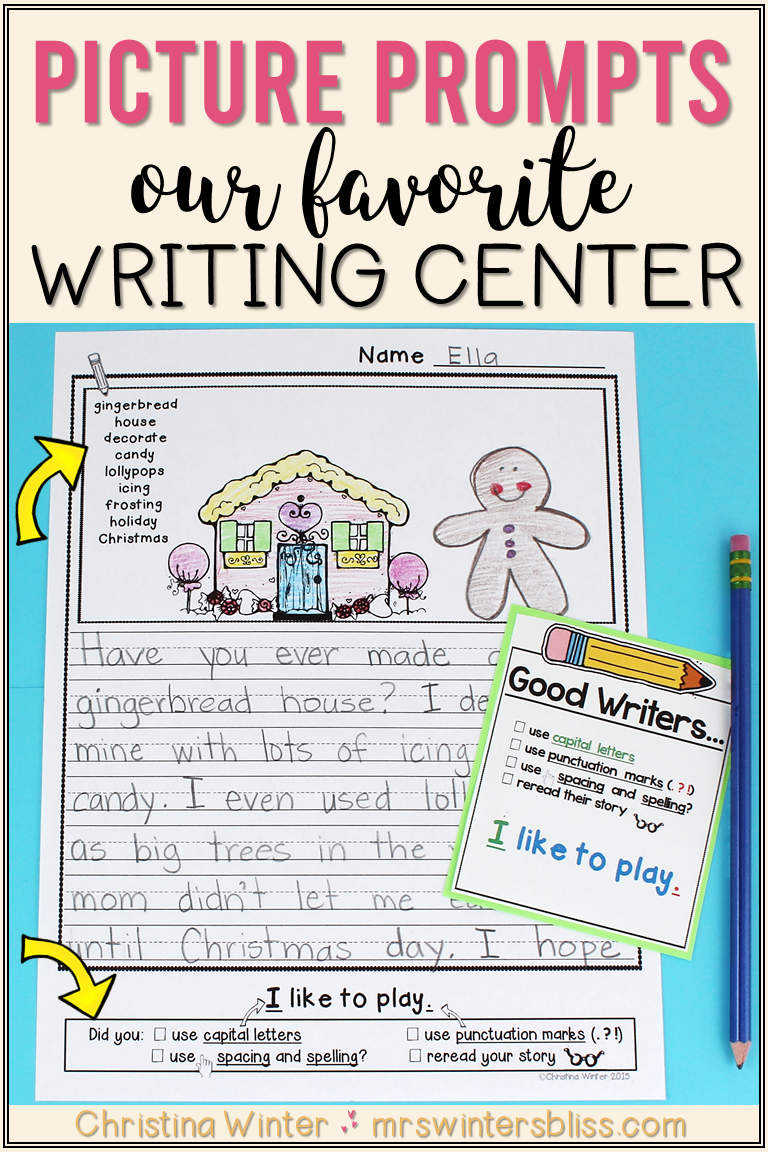 PICTURE PROMPTS
our favorite
WRITING CENTER
Name Ella
gingerbread
house
decorate
candy
lollypops
icing
frosting
holiday
Christmas
Have you ever made
gingerbread house? I de
mine with lots of icing
candy. I even used lol
as big trees in the
mom didn't let me
until Christmas day. I hope
Good Writers...
use capital letters
use punctuation marks (. ? !)
use spacing and spelling?
reread their story
I like to play.
I like to play.
Did you: use capital letters use punctuation marks (. ? !)
use spacing and spelling? reread your story
©Christina Winter 2015
Christina Winter mrswintersbliss.com